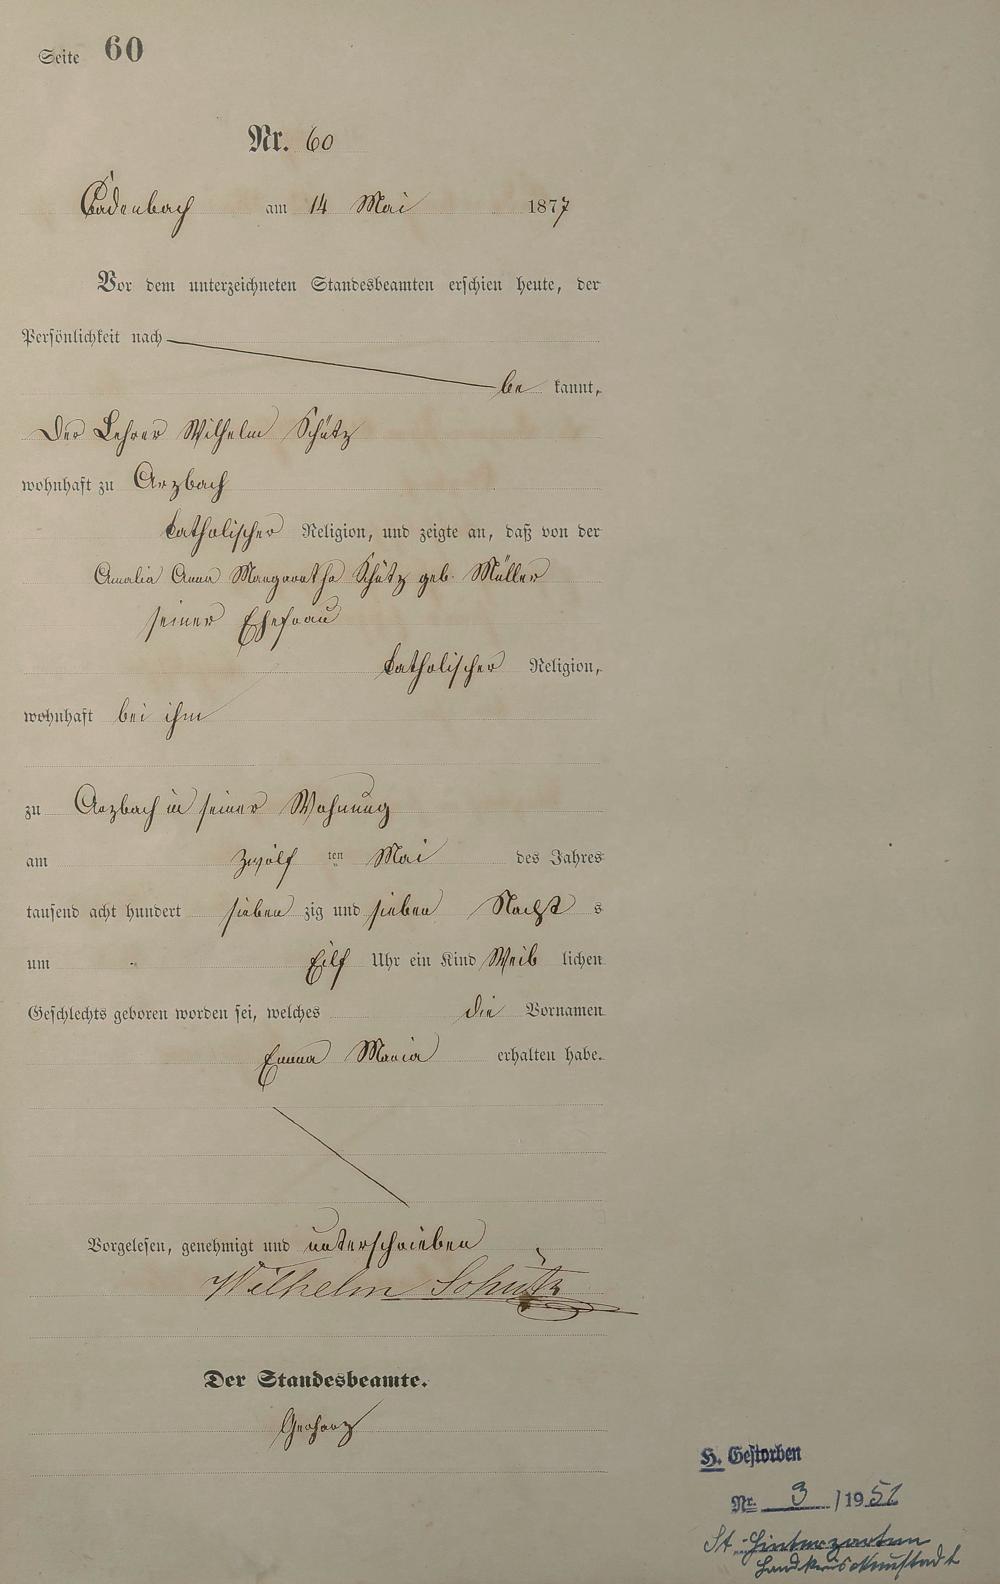 Seite 60
Nr. 60
Cadenbach am 14 Mai 1877
Vor dem unterzeichneten Standesbeamten erschien heute, der
Persönlichkeit nach
be kannt,
Der Lehrer Wilhelm Schütz
wohnhaft zu Arzbach
katholischer Religion, und zeigte an, daß von der
Amalia Anna Margaretha Schütz geb. Müller
seiner Ehefrau
katholischer Religion,
wohnhaft bei ihm
zu Arzbach in seiner Wohnung
am zwölf ten Mai des Jahres
tausend acht hundert sieben zig und sieben Nacht s
um Eilf Uhr ein Kind Weib lichen
Geschlechts geboren worden sei, welches die Vornamen
Emma Maria erhalten habe.
Vorgelesen, genehmigt und unterschrieben
Wilhelm Schütz
Der Standesbeamte.
Gerharz
H. Gestorben
Nr. 3 / 1952
St. Hinterzarten
Landkreis Neustadt